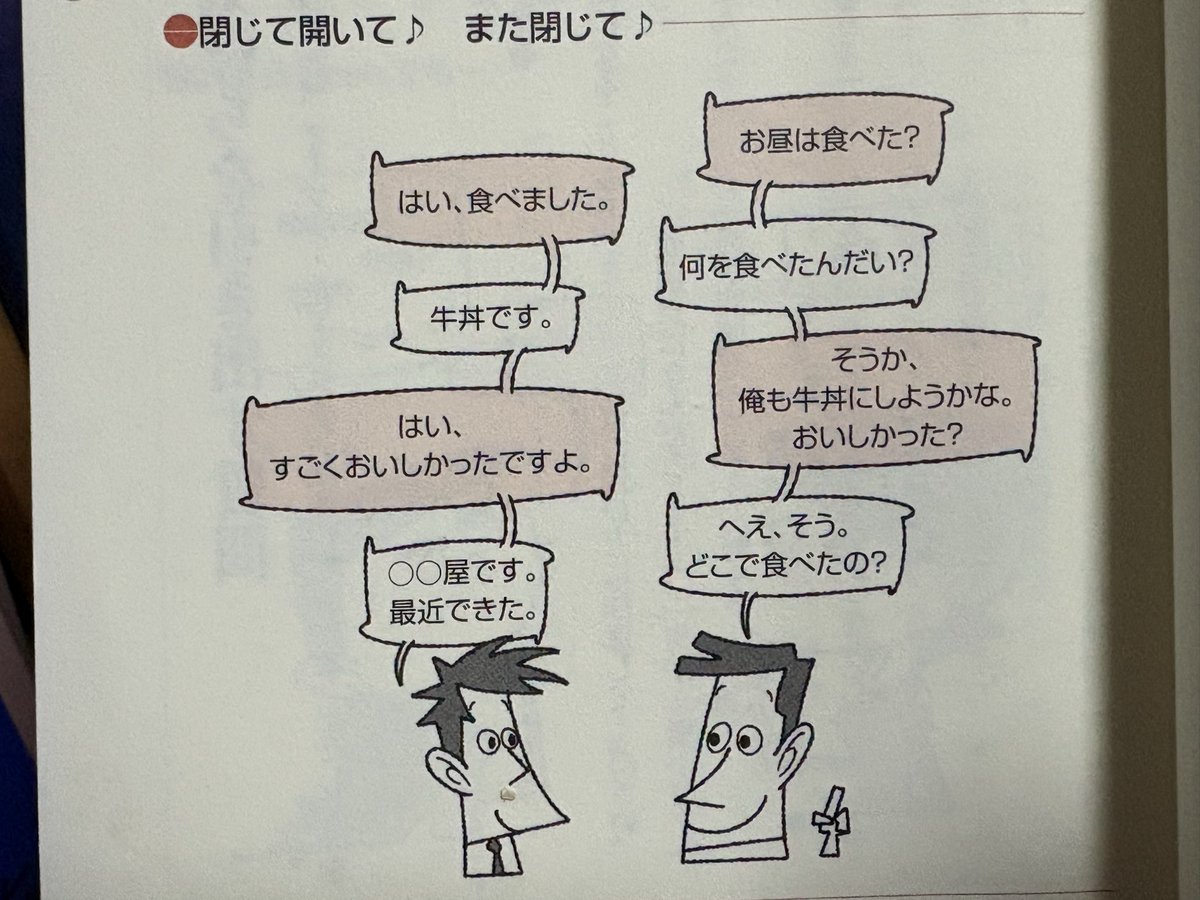 ●閉じて開いて♪　また閉じて♪
お昼は食べた?
はい、食べました。
何を食べたんだい?
牛丼です。
そうか、
俺も牛丼にしようかな。
おいしかった?
はい、
すごくおいしかったですよ。
へえ、そう。
どこで食べたの?
○○屋です。
最近できた。